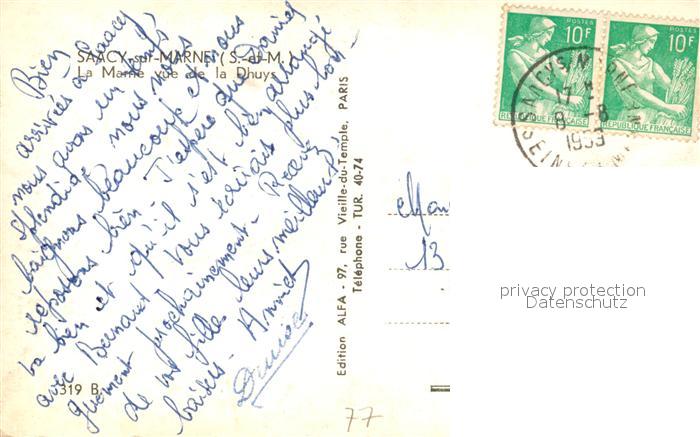 SAACY-sur-MARNE (S.-et-M.)
La Marne vue de la Dhuys
Bien
arrivés à Saacy
et nous avons un temps
splendide nous nous
baignons beaucoup et nous
reposons bien - J'espère que Daniel
va bien et qu'il s'est bien arrangé
avec Bernard / vous écrirais plus lon-
guement prochainement - Recevez
de vos filles leurs meilleurs
baisers - Annick
Denise
319 B
Edition ALFA - 97, rue Vieille-du-Temple, PARIS
Téléphone - TUR. 40-74
POSTES
10F
REPUBLIQUE FRANÇAISE
POSTES
10F
REPUBLIQUE FRANÇAISE
17 H
8 - 8
1959
13
privacy protection
Datenschutz
77